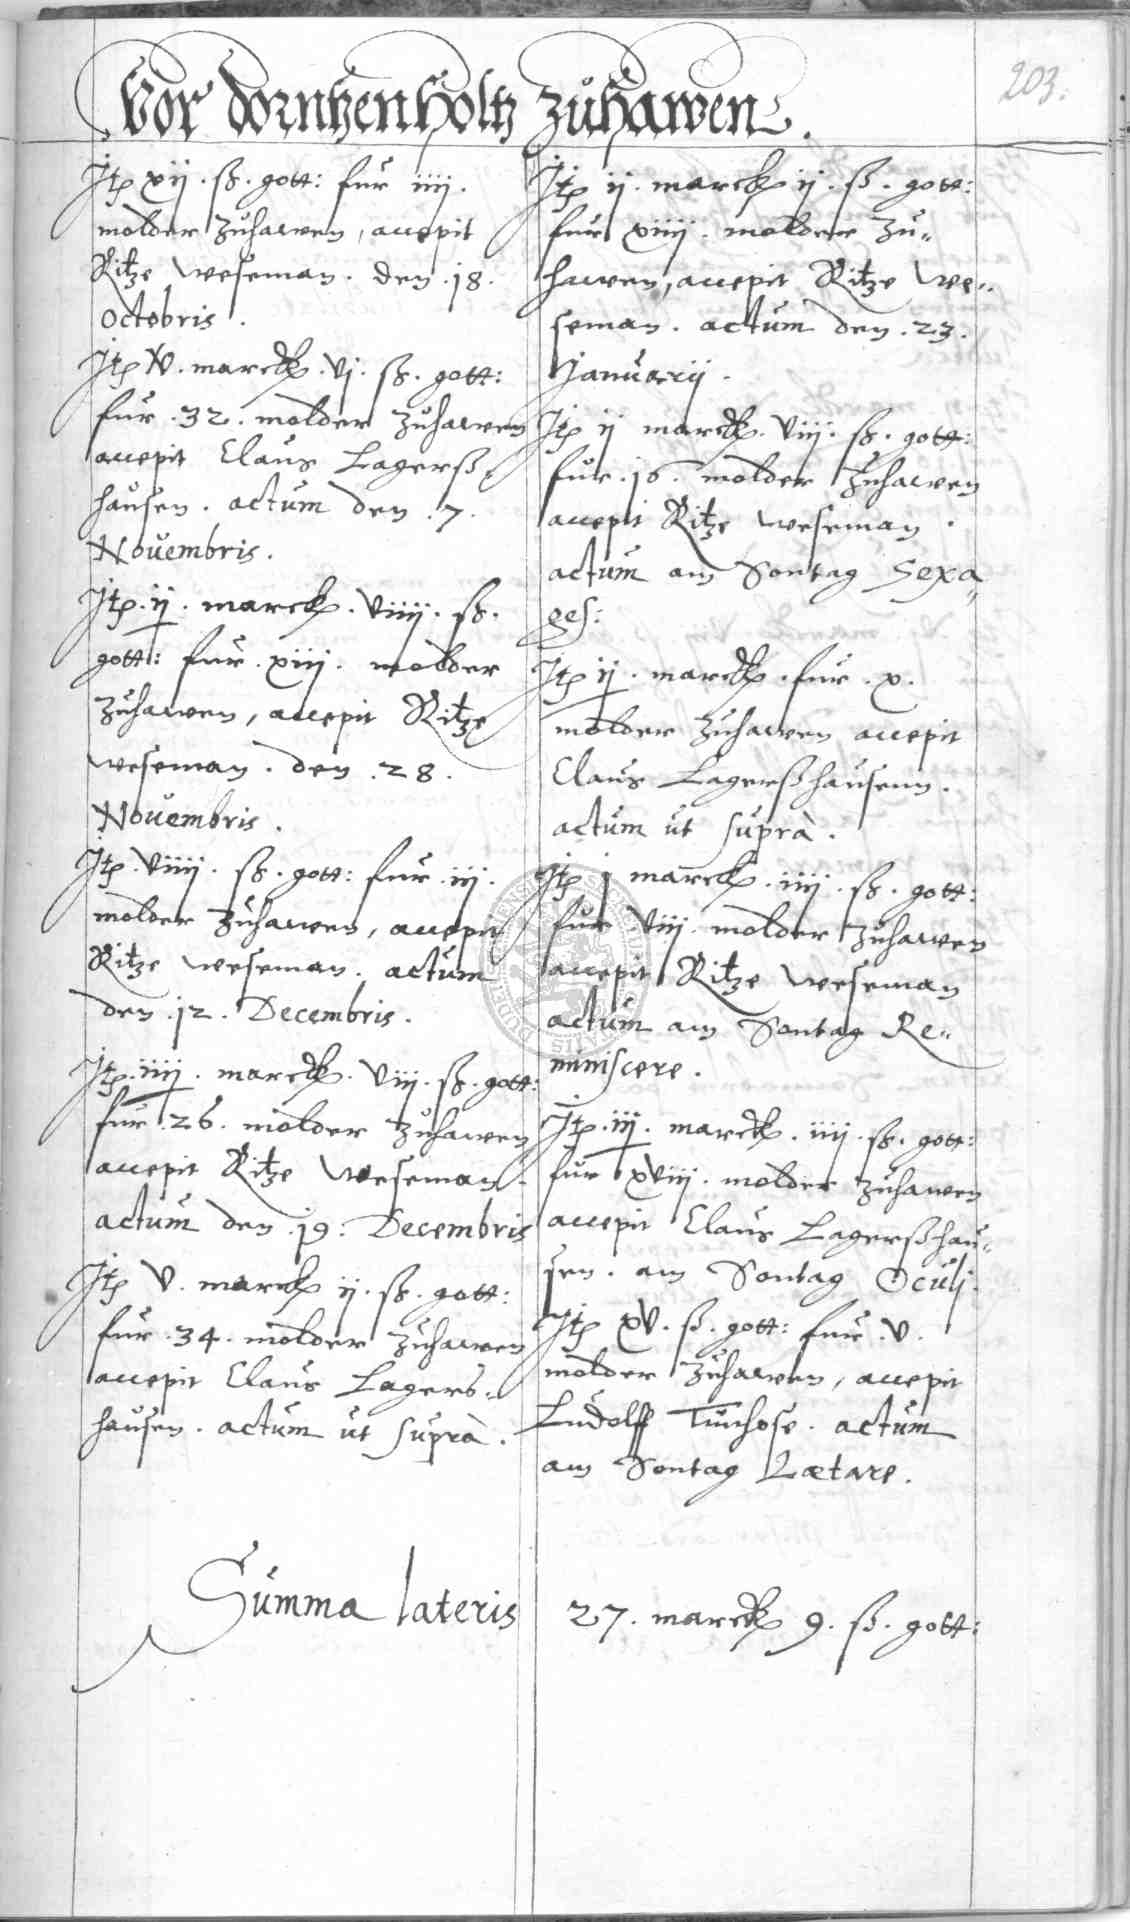 203.
Vor dorntzenholtz zuhawen.
Jtp xij. ß. gott: fur iiij.
molder zuhawen, accepit
Ritze Weseman. den .18.
Octobris.
Jtp V. marck. vj. ß. gott:
fur .32. molder zuhawen
accepit Claus Lagerß„
hausen. actum den .7.
Novembris.
Jtp. ij. marck. viiij. ß.
gott: fur .xiiij. molder
zuhawen, accepit Ritze
Weseman. den .28.
Novembris.
Jtp. viiij. ß. gott: fur .iij.
molder zuhawen, accepit
Ritze Weseman. actum
den .12. Decembris.
Jtp. iiij. marck. viij. ß. gott:
fur .26. molder zuhawen
accepit Ritze Weseman.
actum den .19. Decembris
Jtp V. marck ij. ß. gott:
fur .34. molder zuhawen
accepit Claus Lagers„
hausen. actum ut suprà.
Jtp ij. marck ij. ß. gott:
fur xiiij. molder zu„
hawen, accepit Ritze We„
seman. actum den .23.
Januarij.
Jtp ij marck. viij. ß. gott:
fur .16. molder zuhawen
accepit Ritze Weseman.
actum am Sontag Sexa„
ges:
Jtp ij. marck. fur .x.
molder zuhawen accepit
Claus Lagerßhausenn.
actum ut suprà.
Jtp j marck. iiij. ß. gott:
fur viij. molder zuhawen
accepit Ritze Weseman
actum am Sontag Re„
miniscere.
Jtp. iij. marck. iiij. ß. gott:
fur xviij. molder zuhawen
accepit Claus Lagerßhau„
sen. am Sontag Oculj.
Jtp xv. ß. gott: fur .v.
molder zuhawen, accepit
Ludolff Tunhose. actum
am Sontag Lætare.
Summa lateris 27. marck 9. ß. gott: